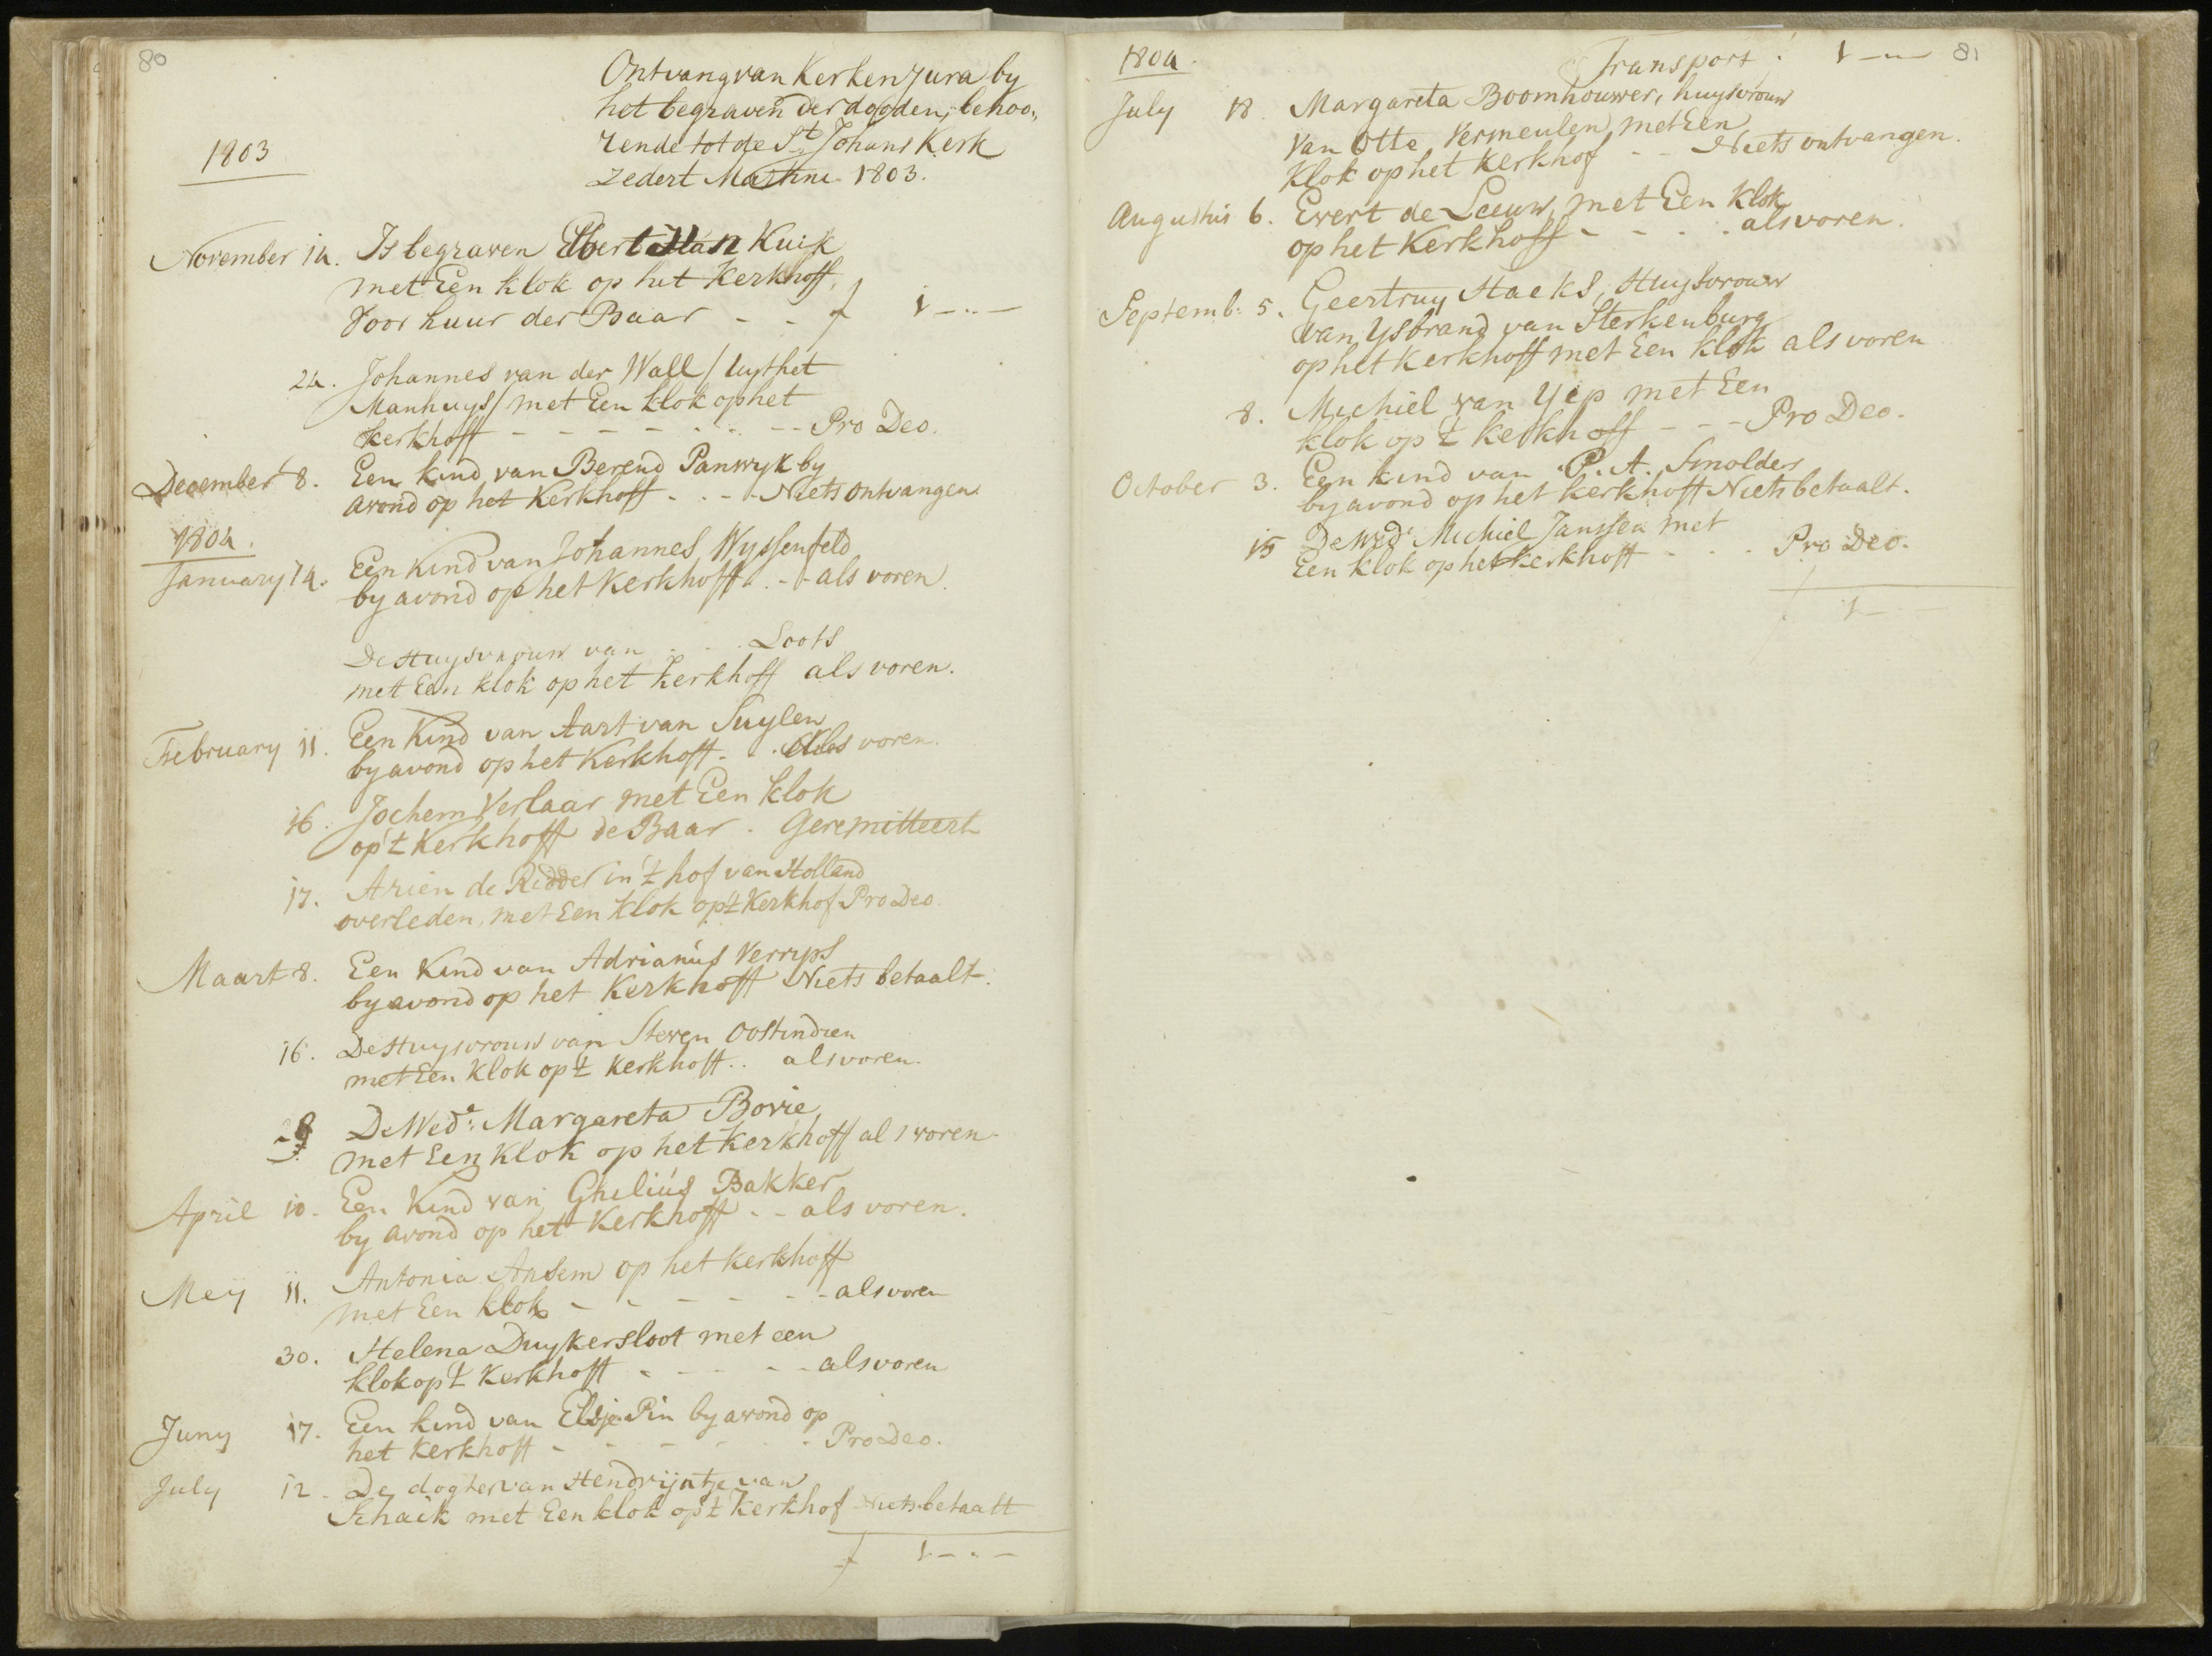 80
Ontvang van Kerken Jura by
het begraven der dooden, behoo„
rende tot de St. Johans Kerk
zedert Martini 1803.
1803
November 14. Is begraven Evert van Kuik
met Een klok op het Kerkhoff,
Voor huur der Baar - - f 1 -..-
24. Johannes van der Wall / uyt het
Manhuys / met Een klok op het
kerkhoff - - - - - - - Pro Deo.
December 8. Een kind van Berend Panwyk by
avond op het Kerkhoff - - - Niets ontvangen
1804.
January 14. Een Kind van Johannes Wyssenfeld
by avond op het Kerkhoff - - als voren
De Huysvrouw van . . . Loots
met Een klok op het kerkhoff als voren.
February 11. Een Kind van Aart van Suylen
by avond op het Kerkhoff - . als voren.
16. Jochem Verlaar met Een klok
op 't Kerkhoff de Baar . Geremitteert
17. Arien de Ridder in 't hof van Holland
overleden, met Een klok op 't Kerkhof Pro Deo.
Maart 8. Een Kind van Adrianus Verryps
by avond op het Kerkhoff Niets betaalt.
16. De Huysvrouw van Steven Oostindien
met Een klok op 't Kerkhoff .. als voren.
28 De Wede: Margareta Bovie
met Een klok op het Kerkhoff als voren
April 10. Een Kind van Ghilius Bakker
by avond op het Kerkhoff - - als voren.
Meij 11. Antonia Ansem op het kerkhoff
met Een klok - - - - - - als voren
30. Helena Duykersloot met een
klok op 't Kerkhoff - - - - als voren
Juny 17. Een kind van Elsje Pin by avond op
het Kerkhoff - - - - - Pro Deo.
July 12. De dogter van Hendrijntje van
Schaik met Een klok op 't Kerkhof Niets betaalt
f 1 -.-
81
1804. Transport: 1 -..-
July 18. Margareta Boomhouwer, huysvrouw
van Otto Vermeulen met Een
Klok op het kerkhof - - Niets ontvangen.
Augustus 6. Evert de Leeuw, met Een klok
op het Kerkhoff - - . . als voren.
Septemb: 5. Geertruy Haeks, Huysvrouw
van Ysbrand van Sterkenburg
op het Kerkhoff met Een klok als voren
8. Michiel van Yep met Een
klok op 't kerkhoff - - - Pro Deo.
October 3. Een kind van P. A. Smolders
by avond op het kerkhoff Niets betaalt.
15 De Wede Michiel Janssen met
Een klok op het kerkhoff - - - Pro Deo.
f 1 -